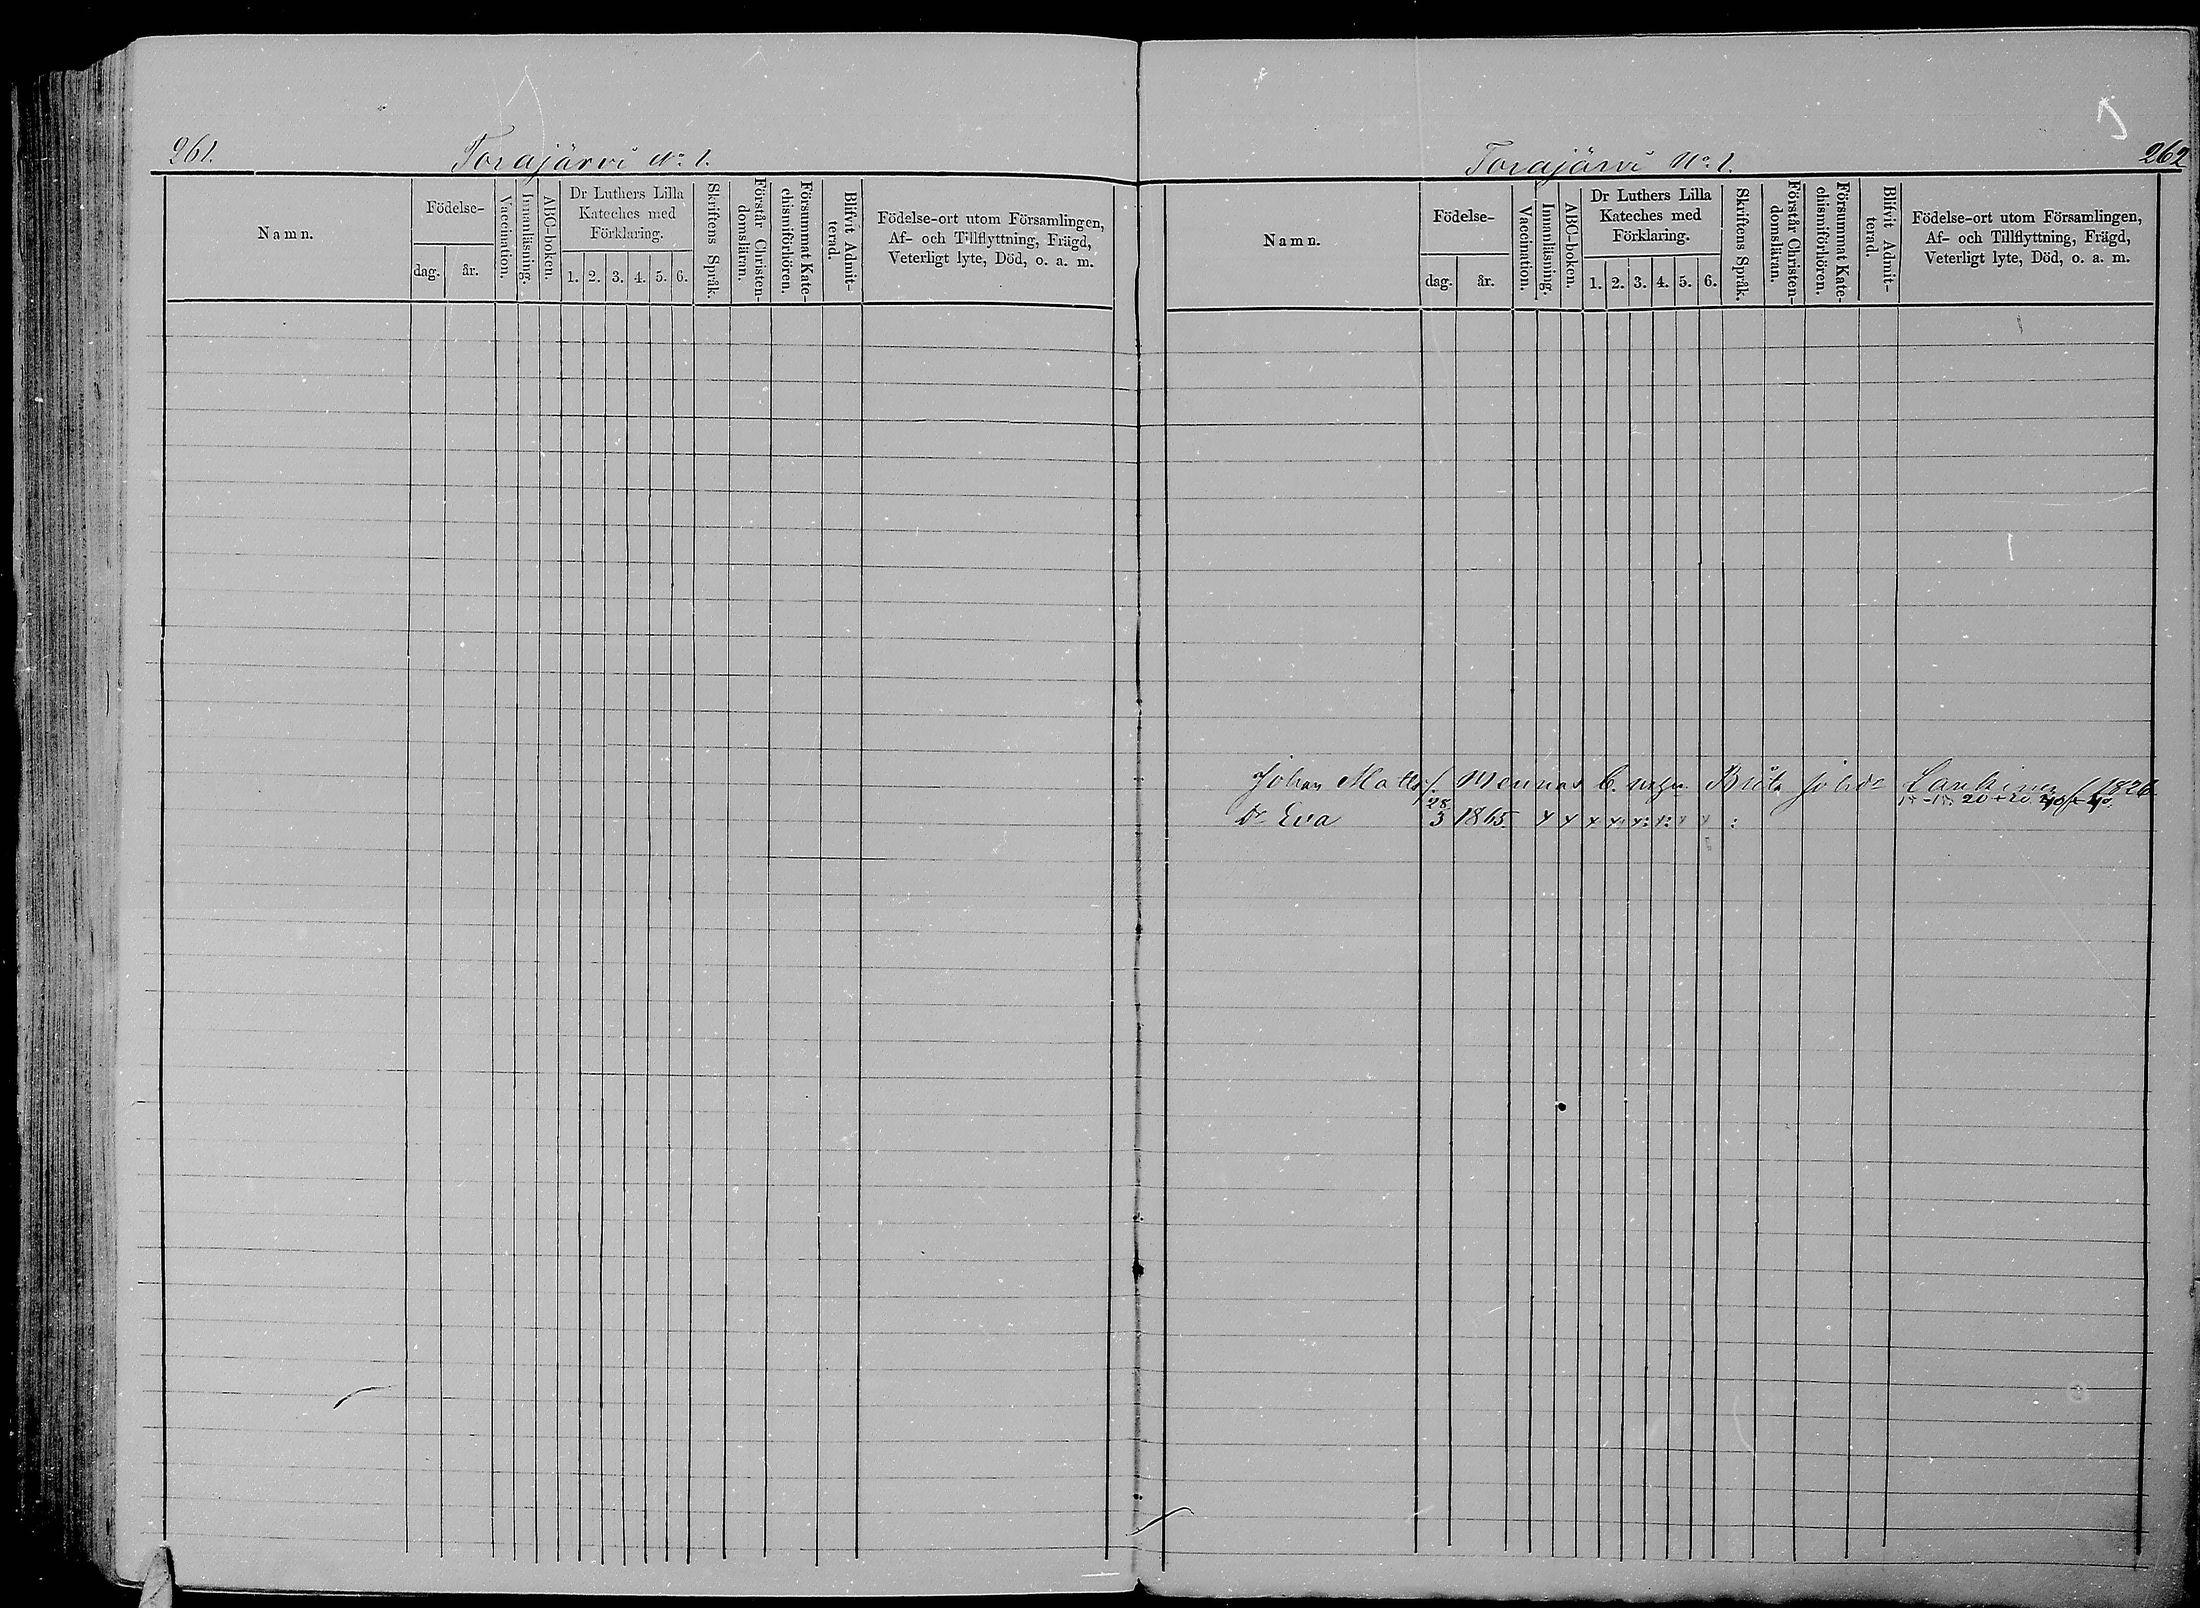 261.
Torajärvi No 1.
Namn.
Födelse-
dag.
år.
Vaccination.
Innanläsning.
ABC-boken.
Dr Luthers Lilla
Kateches med
Förklaring.
1. 2. 3. 4. 5. 6.
Skriftens Språk.
Förstår Christen-
domsläran.
Försummat Kate-
chismiförhören.
Blifvit Admit-
terad.
Födelse-ort utom Församlingen,
Af- och Tillflyttning, Frägd,
Veterligt lyte, Död, o. a. m.
Torajärvi No 1.
262
Namn.
Födelse-
dag.
år.
Vaccination.
Innanläsning.
ABC-boken.
Dr Luthers Lilla
Kateches med
Förklaring.
1. 2. 3. 4. 5. 6.
Skriftens Språk.
Förstår Christen-
domsläran.
Försummat Kate-
chismiförhören.
Blifvit Admit-
terad.
Födelse-ort utom Församlingen,
Af- och Tillflyttning, Frägd,
Veterligt lyte, Död, o. a. m.
Johan Matts f. 1826
28
Dr Eva 3 1865.